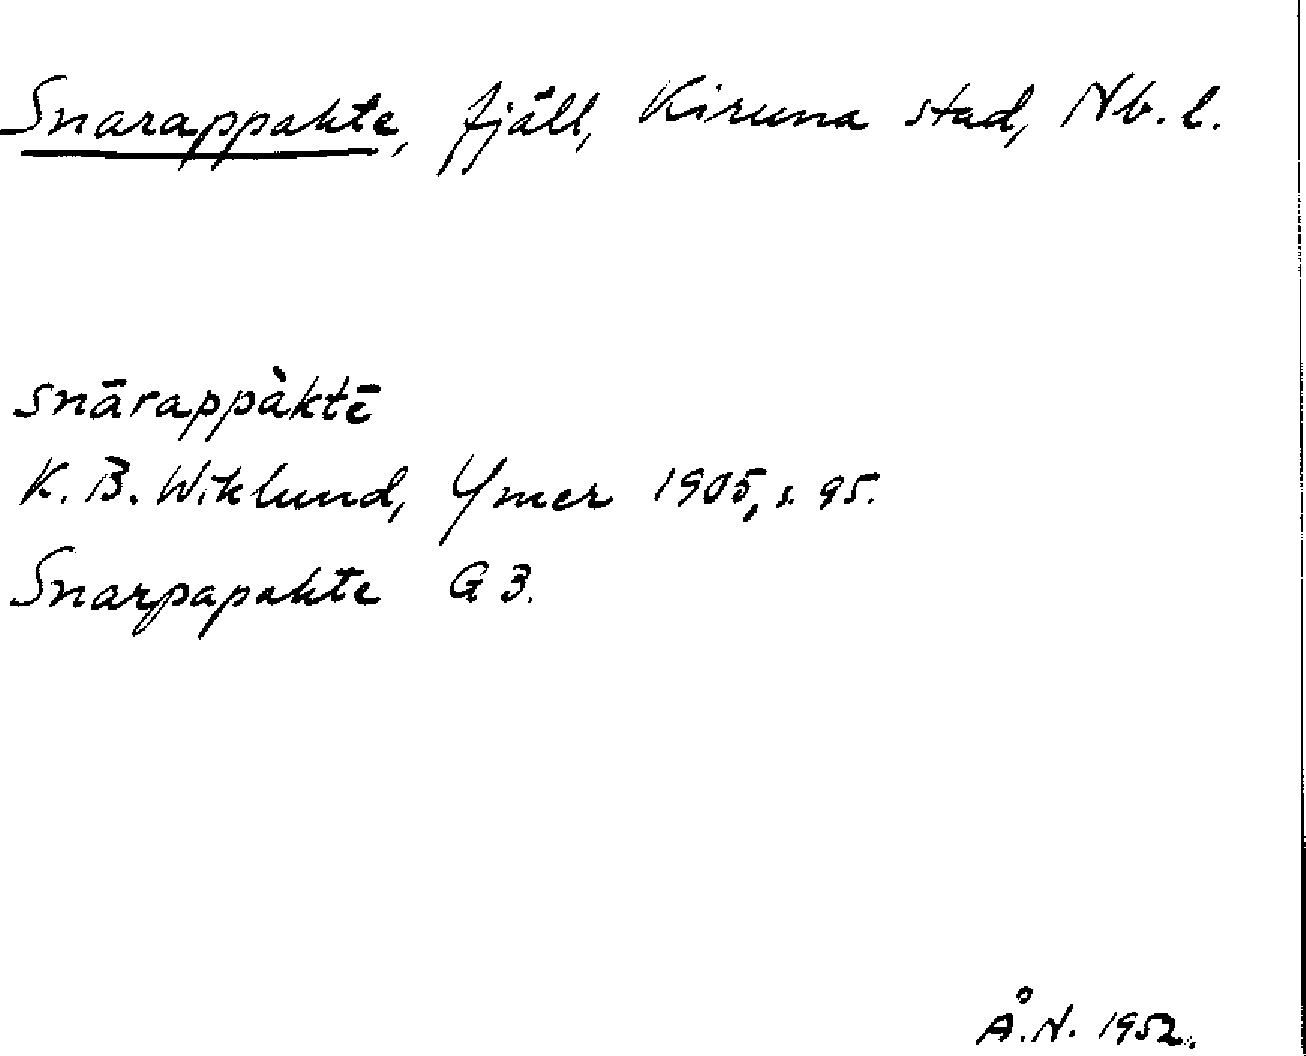 Snarappakte, fjäll, Kiruna stad, Nb. l.
snārappàktē
K. B. Wiklund, Ymer 1905, s. 95.
Snarpapakte G 3.
Å. N. 1952.